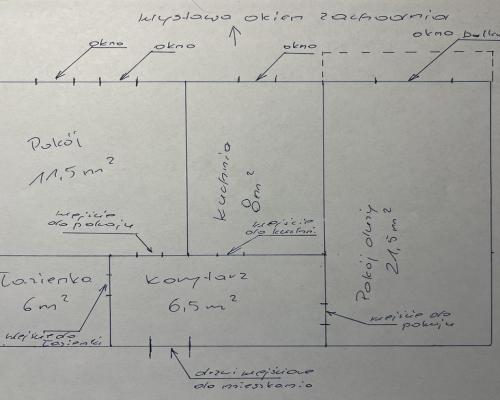 Wystawa okien zachodnia
okno
okno
okno
okno balko
Pokój
11,5 m²
Kuchnia
8 m²
Pokój duży
21,5 m²
wejście
do pokoju
wejście
do kuchni
Łazienka
6 m²
Korytarz
6,5 m²
wejście do
Łazienki
wejście do
pokoju
drzwi wejściowe
do mieszkania